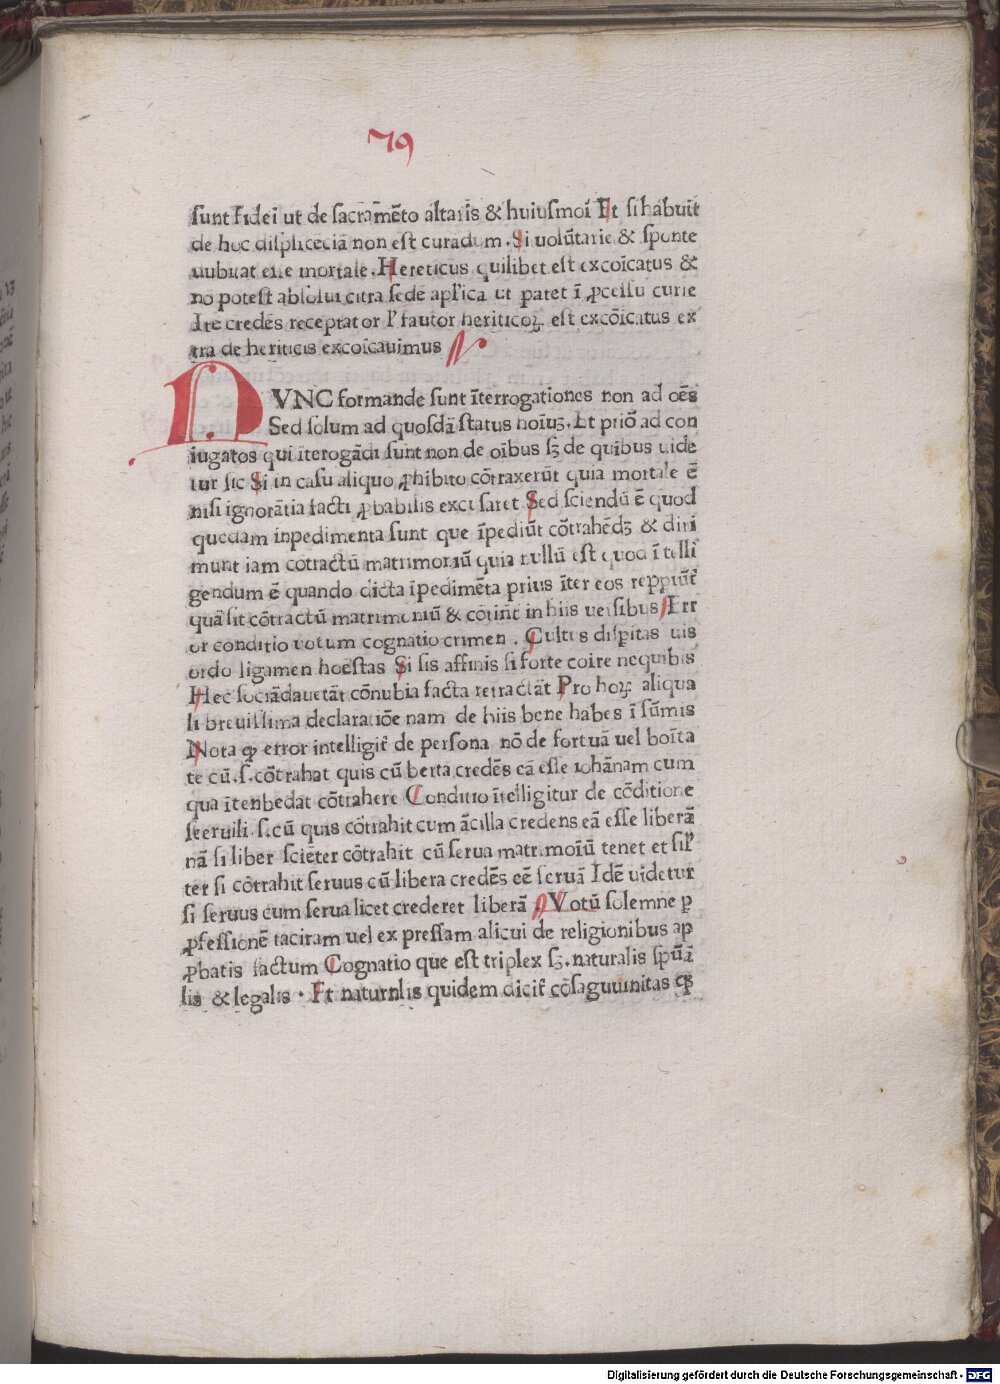 79
sunt fidei ut de sacram̄ēto altaris & huiusmoi Et si habuit̄
de hoc displicēciā non est curadum . Si volūtarie & sponte
uubuat esse mortale . Hereticus quilibet est excoīcatus &
nō potest absolui citra sedē apl'ica ut patet ī ꝓcessu curie
Itē credēs receptator l' fautor heriticoꝝ est excōicatus ex
tra de heriticis excoicauimus
NVNC formande sunt īterrogationes non ad oēs
Sed solum ad quosdā status hoīuꝫ . Et priō ad con
iugatos qui īterogādi sunt non de oībus sꝫ de quibus uide
tur sic Si in casu aliquo ꝓhibito cōtraxerūt quia mortale ē
nisi ignorātia facti ꝓbabilis excusaret Sed sciendū ē quod
quedam inpedimenta sunt que īpediūt cōtrahēdꝫ & diri
munt iam cotractū matrimoniū quia nullū est quod ī telli
gendum ē quando dicta īpedimēta prius īter eos reppiūt̄
quā sit cōtractū matrimoniū & cotinēt in hiis uersibus Err
or conditio uotum cognatio crimen . Cultus dispitas uis
ordo ligamen hoēstas Si sis affinis si forte coire nequibis
Hec sociādauetāt cōnubia facta retractāt Pro hoꝝ aliqua
li breuissima declaratiōe nam de hiis bene habes ī sūmis
Nota ꝙ error intelligit̄ de persona nō de fortuā uel boīta
te cū . s . cōtrahat quis cū berta credēs eā esse iohānam cum
qua ītenbedat cōtrahere Conditio ītelligitur de cōditione
seeruili . s . cū quis cōtrahit cum ācilla credens eā esse liberā
nā si liber sciēter cōtrahit cū serua matrimoīū tenet et sil'
ter si cōtrahit seruus cū libera credēs eē seruā Idē uidetur
si seruus cum serua licet crederet liberā . Votū solemne p
ꝓfessionē taciram uel ex pressam alicui de religionibus ap
ꝓbatis factum Cognatio que est triplex sꝫ . naturalis spūā
lis & legalis . Et naturnlis quidem dicit̄ cōsaguuinitas ꝙ
Digitalisierung gefördert durch die Deutsche Forschungsgemeinschaft - DFG